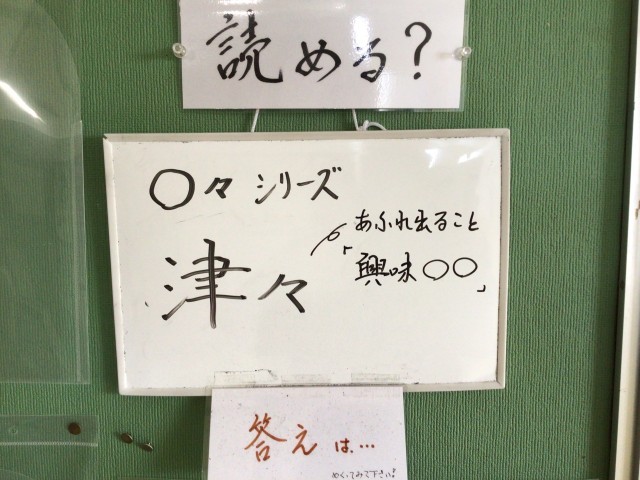 読める?
〇々シリーズ
津々
あふれ出ること
「興味〇〇」
答えは…
めくってみて下さい!